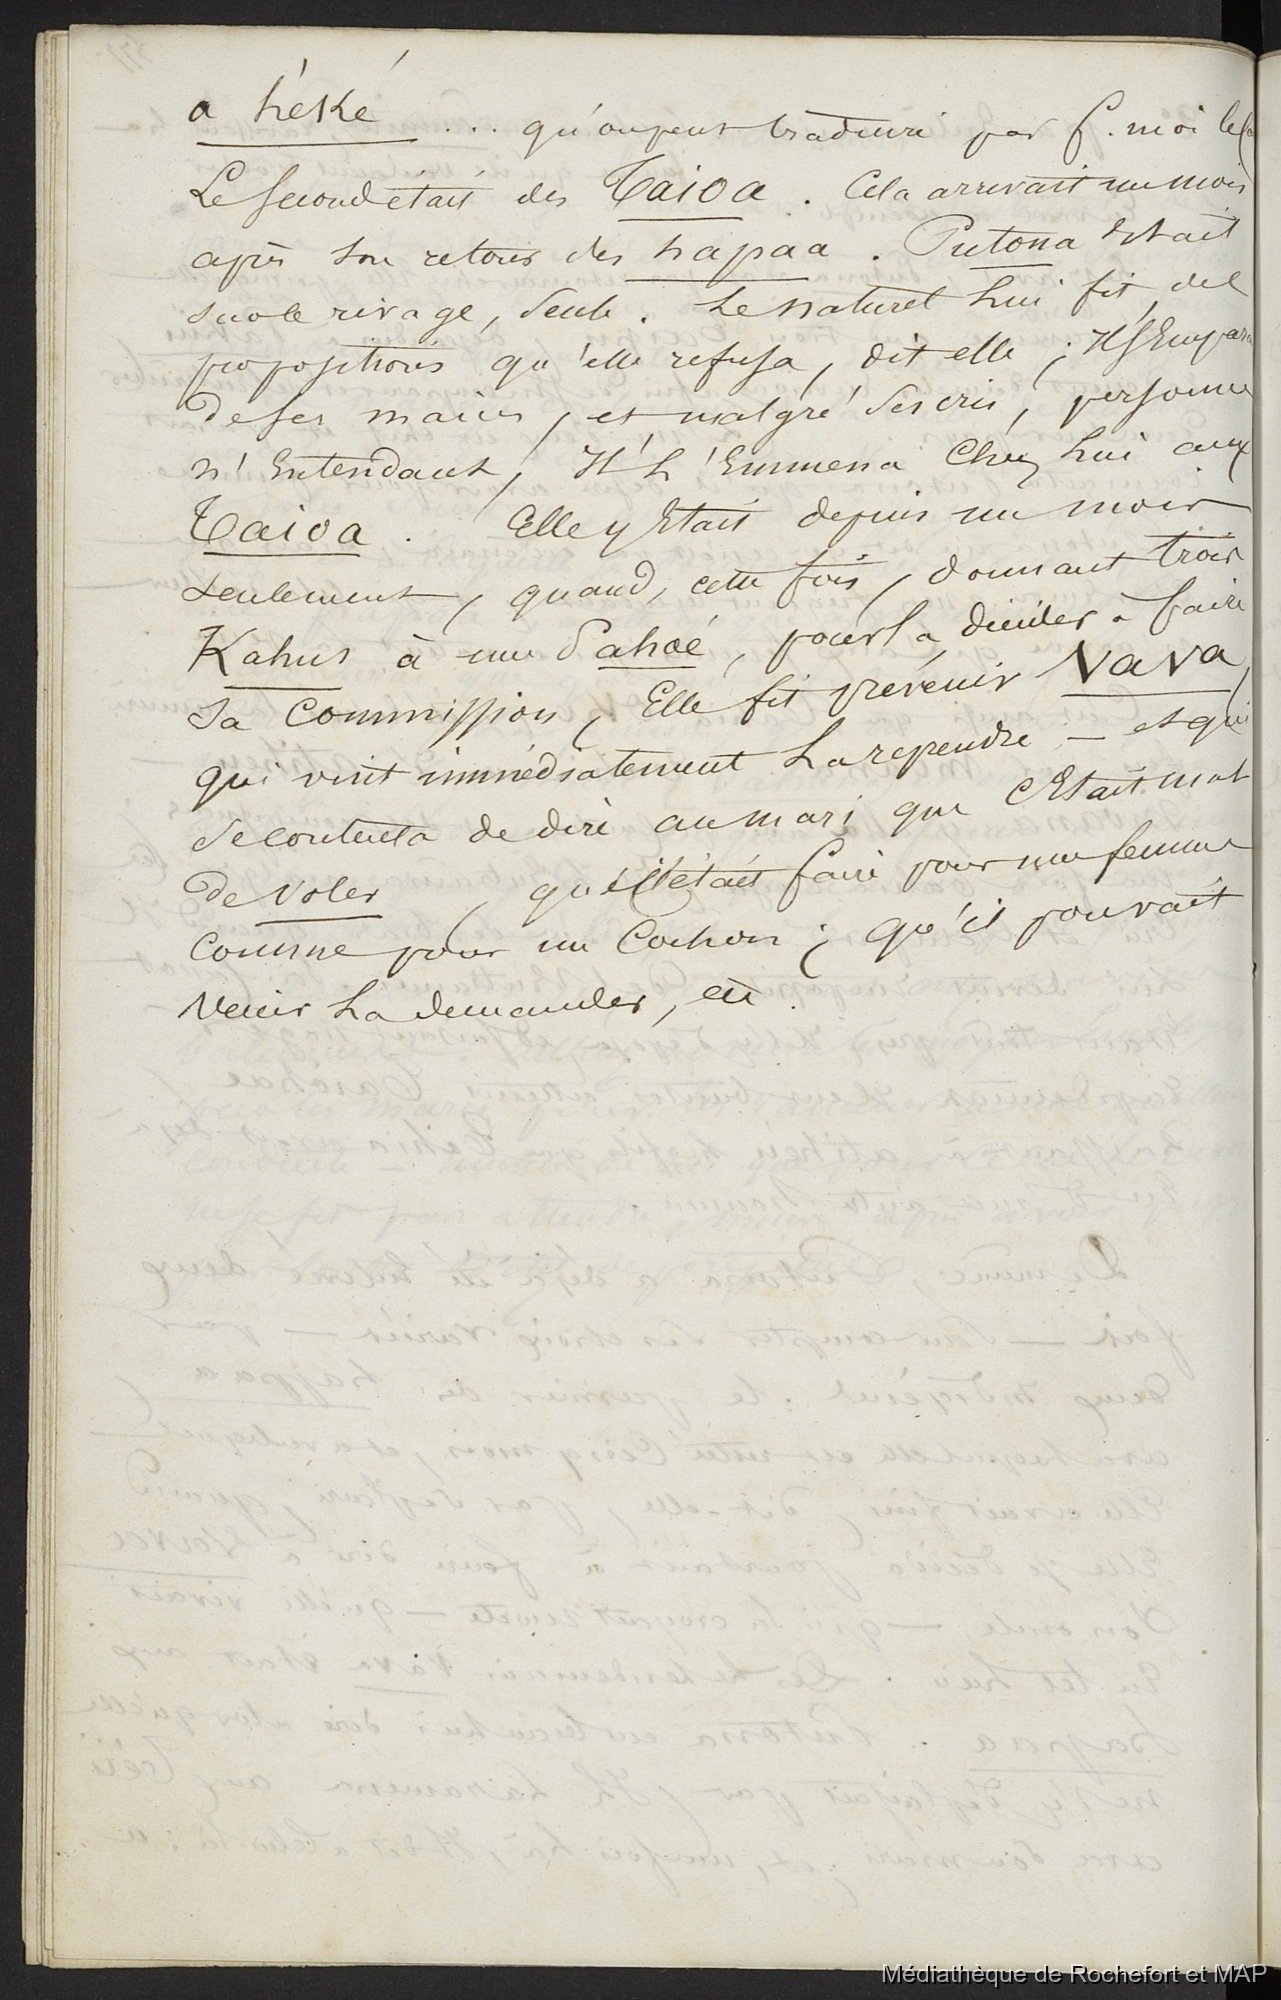 a héké ... qu'on peut traduire par f. moi le
Le second était des Taioa. Cela arrivait un mois
après son retour des hapaa. Putona était
sur le rivage, seule. Le naturel lui fit des
propositions qu'elle refusa, dit elle ; Il s'empara
de ses mains, et malgré ses cris, personne
n'entendant, Il l'emmena chez lui aux
Taioa. Elle y était depuis un mois
seulement, quand, cette fois, donnant trois
Kahus à une Pahoé, pour la décider à faire
sa commission, Elle fit prévenir Vava,
qui vint immédiatement la reprendre — et qui
se contenta de dire au mari que c'était mal
de voler, qu'il était faire pour une femme
comme pour un cochon ; qu'il pouvait
venir la demander, etc.
Médiathèque de Rochefort et MAP